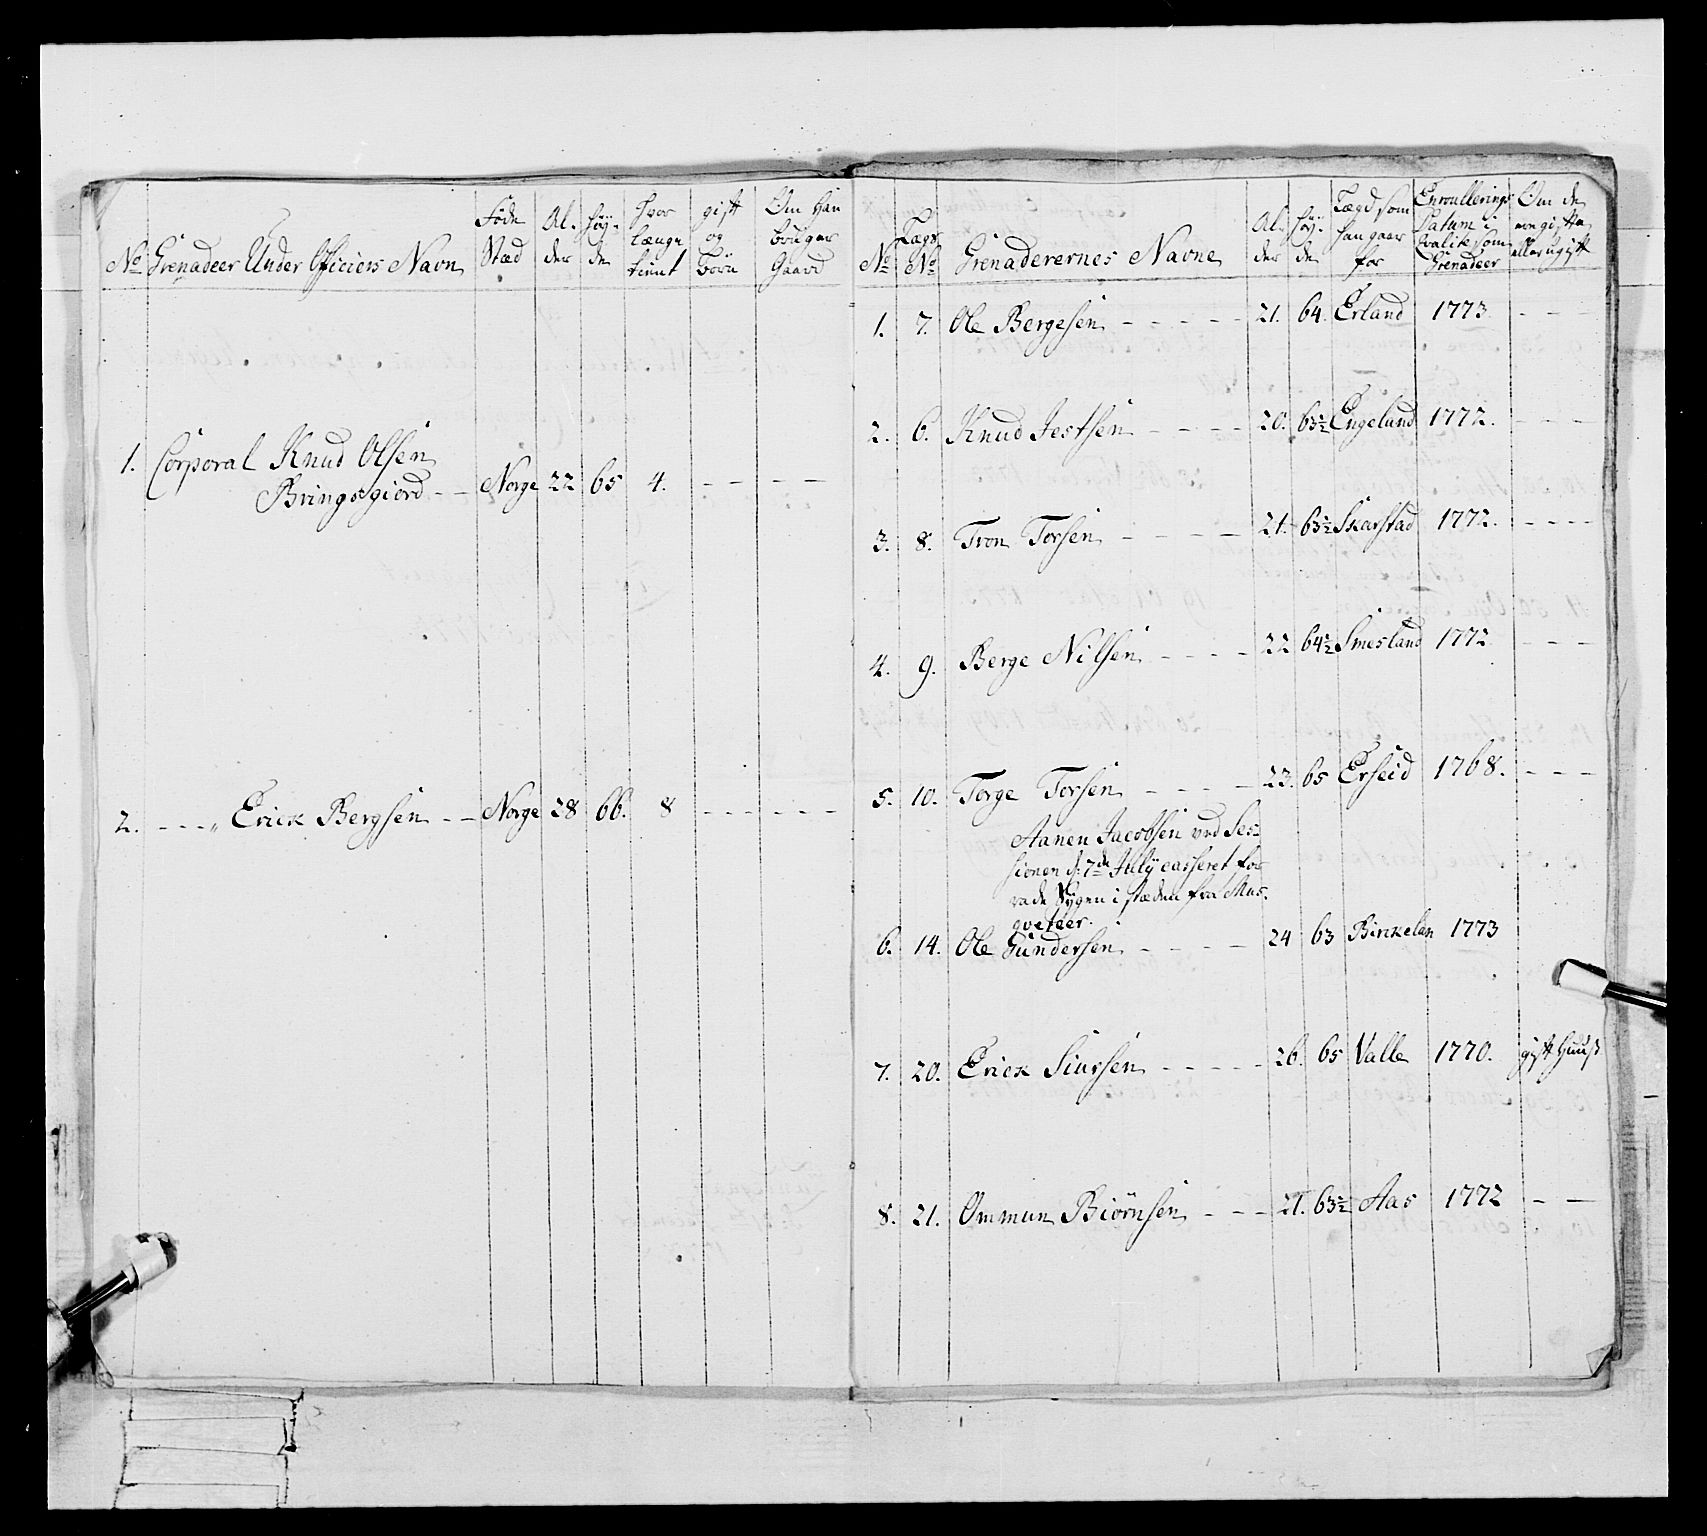 No Grenadeer Under Officiers Navn Føde Stæd Al- der Høy- de Hvor længe tient gift og Børn Om Han bruger Gaard
1. Corporal Knud Olsen
Bringsgierd - - Norge 22 65 4. - - - -
2. - - - „ Erick Bergsen - - Norge 28 66. 8 - - - - - -
No Lægs No Grenaderernes Navne Al- der Høy- de Lægd som han gaar for Enroullerings Datum i Qvalite som Grenadeer Om de ere gifte eller ugift
1. 7. Ole Bergesen - - - - - 21. 64. Erland 1773 - - -
2. 6. Knud Jestsen - - - - 20. 63½ Engeland 1772. - - -
3. 8. Tron Torsen - - - - - 21. 63½ Skarstad 1772. - - - -
4. 9. Berge Nilsen - - - - 22 64½ Smesland 1772 - - -
5. 10. Torge Torsen - - - - 23. 65 Erseid 1768. - - -
Aanen Jacobsen ved Ses-
sionen d: 7de July casseret for
rade Sygen i stæden fra Mus-
qveteer.
6. 14. Ole Gundersen - - - - 24 63 Birkelan 1773
7. 20. Erick Siursen - - - - - 26. 65 Valle 1770. gift Huus
8. 21. Ommun Biörnsen - - - 21. 63½ Aas 1772 - -